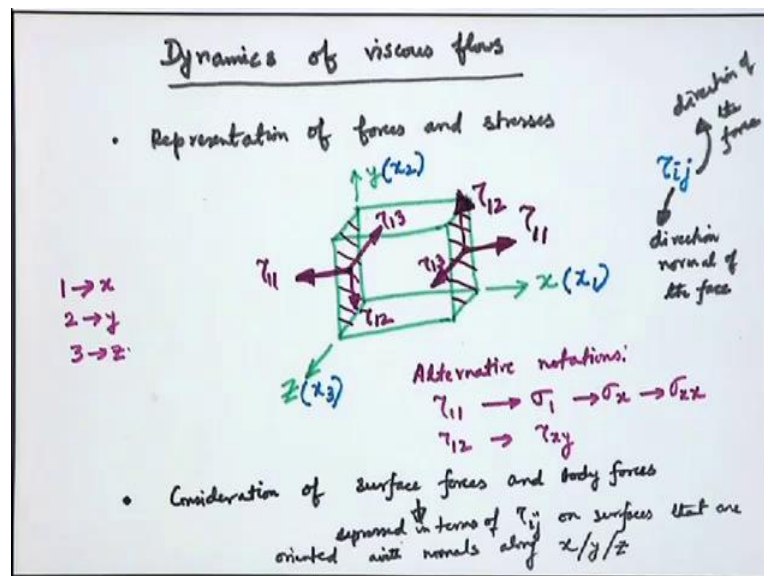 Dynamics of viscous flows
• Representation of forces and stresses
direction of the force
τij
direction normal of the face
y(x2)
τ13
τ12
τ11
τ11
τ13
τ12
x (x1)
z(x3)
1→x
2→y
3→z
Alternative notations:
τ11 → σ1 → σx → σxx
τ12 → τxy
• Consideration of surface forces and body forces
expressed in terms of τij on surfaces that are
oriented with normals along x/y/z